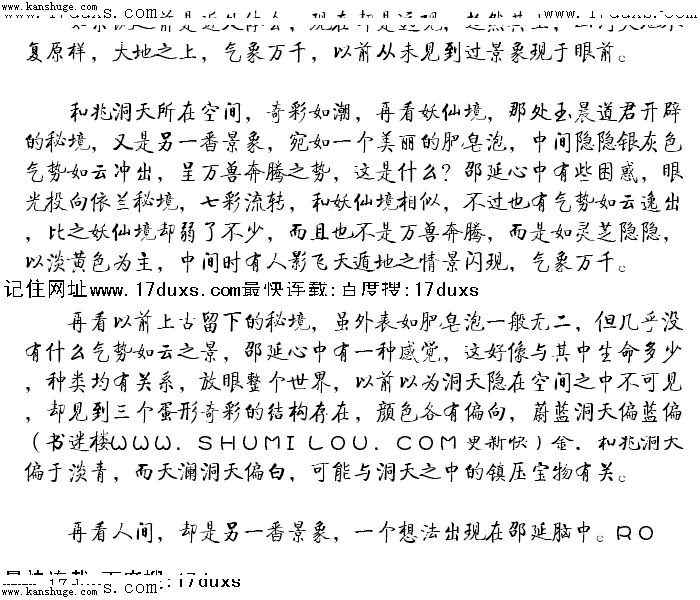 www.kanshuge.com
www.17duxs.com
www.kanshuge.com
复原样，大地之上，气象万千，以前从未见到过景象现于眼前。
和兆洞天所在空间，奇彩如潮，再看妖仙境，那处玉晨道君开辟
的秘境，又是另一番景象，宛如一个美丽的肥皂泡，中间隐隐银灰色
气势如云冲出，呈万兽奔腾之势，这是什么？邵延心中有些困惑，眼
光投向依兰秘境，七彩流转，和妖仙境相似，不过也有气势如云逸出
，比之妖仙境却弱了不少，而且也不是万兽奔腾，而是如灵芝隐隐，
以淡黄色为主，中间时有人影飞天遁地之情景闪现，气象万千。
记住网址www.17duxs.com最快连载:百度搜:17duxs
再看以前上古留下的秘境，虽外表如肥皂泡一般无二，但几乎没
有什么气势如云之景，邵延心中有一种感觉，这好像与其中生命多少
，种类均有关系，放眼整个世界，以前以为洞天隐在空间之中不可见
，却见到三个蛋形奇彩的结构存在，颜色各有偏向，蔚蓝洞天偏蓝偏
（书迷楼ＷＷＷ．ＳＨＵＭＩＬＯＵ．ＣＯＭ更新快）金，和兆洞天
偏于淡青，而天澜洞天偏白，可能与洞天之中的镇压宝物有关。
再看人间，却是另一番景象，一个想法出现在邵延脑中。ＲＯ
17duxs
www.kanshuge.com
www.kanshuge.com